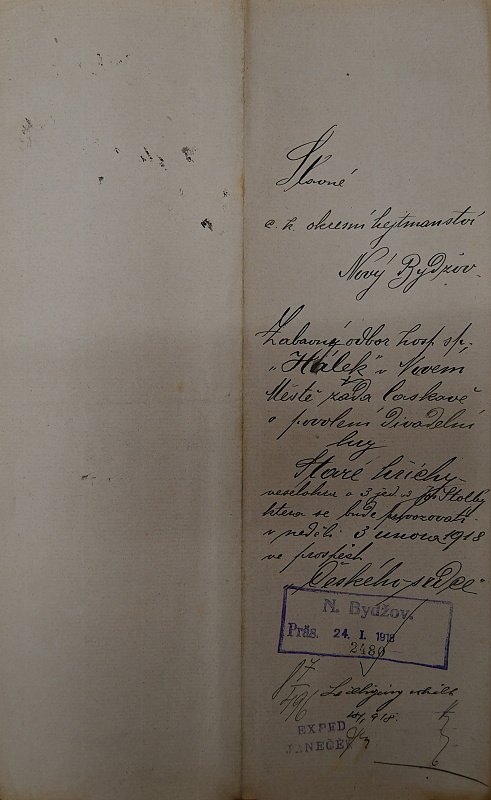 Slavné
c. k. okresní hejtmanství
Nový Bydžov.
Zábavný odbor hosp. sp.
„Hálek" v Novém
Městě žádá laskavě
o povolení divadelní
hry
Staré hříchy
veselohra o 3 jed. od Štolby
která se bude provozovati
v neděli 3 února 1918
ve prospěch
„Českého srdce"
N. Bydžov.
Präs. 24. I. 1918
2480
EXPED
JANEČEK